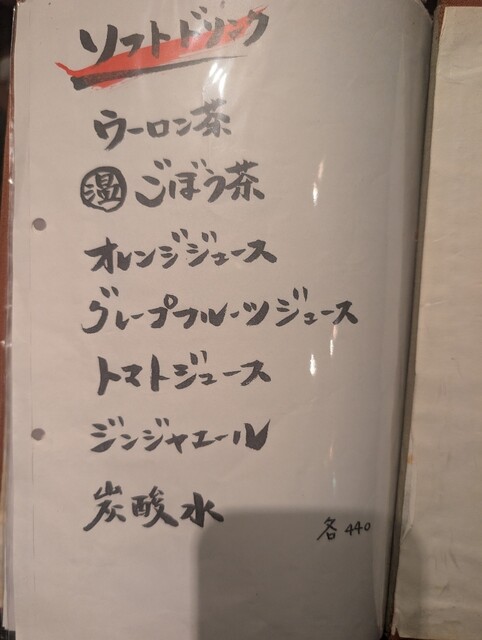 ソフトドリンク
ウーロン茶
温 ごぼう茶
オレンジジュース
グレープフルーツジュース
トマトジュース
ジンジャエール
炭酸水
各440